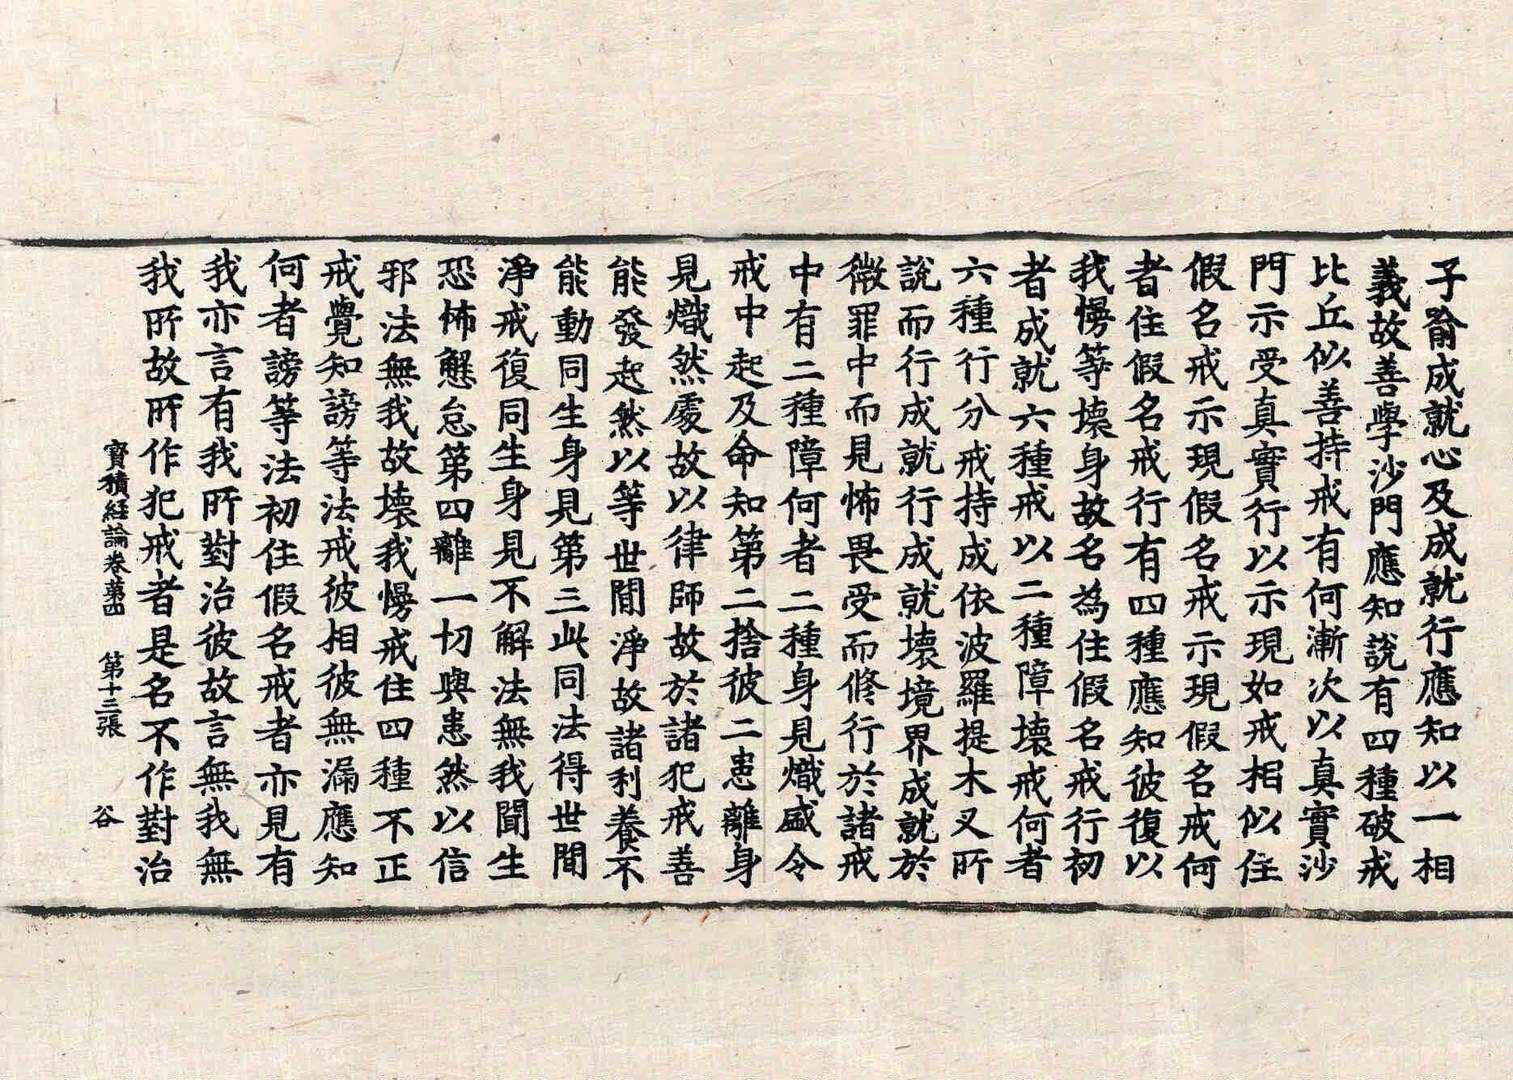 子喻成就心及成就行應知以一相
義故善學沙門應知說有四種破戒
比丘似善持戒有何漸次以真實沙
門示受真實行以示現如戒相似住
假名戒示現假名戒示現假名戒何
者住假名戒行有四種應知彼復以
我慢等壞身故名為住假名戒行初
者成就六種戒以二種障壞戒何者
六種行分戒持成依波羅提木叉所
說而行成就行成就壞境界成就於
微罪中而見怖畏受而修行於諸戒
中有二種障何者二種身見熾盛令
戒中起及命知第二捨彼二恚離身
見熾然處故以律師故於諸犯戒善
能發起然以等世間淨故諸利養不
能動同生身見第三此同法得世間
淨戒復同生身見不解法無我聞生
恐怖懈怠第四離一切與恚然以信
邪法無我故壞我慢戒住四種不正
戒覺知謗等法戒彼相彼無漏應知
何者謗等法初住假名戒者亦見有
我亦言有我所對治彼故言無我無
我所故所作犯戒者是名不作對治
寶積経論卷第四　第十三張　谷